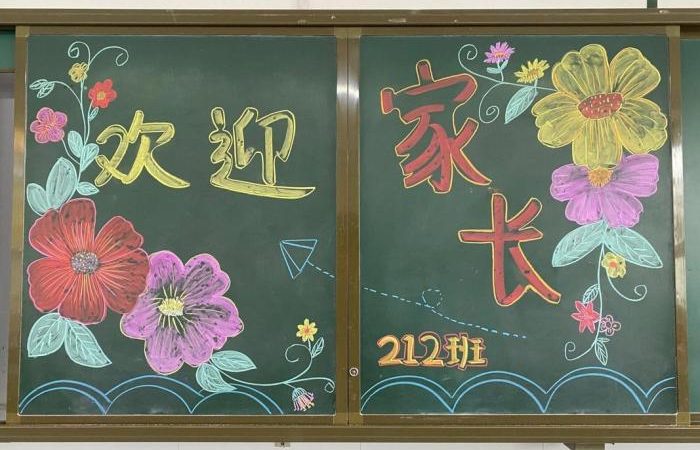 欢迎
家长
212班